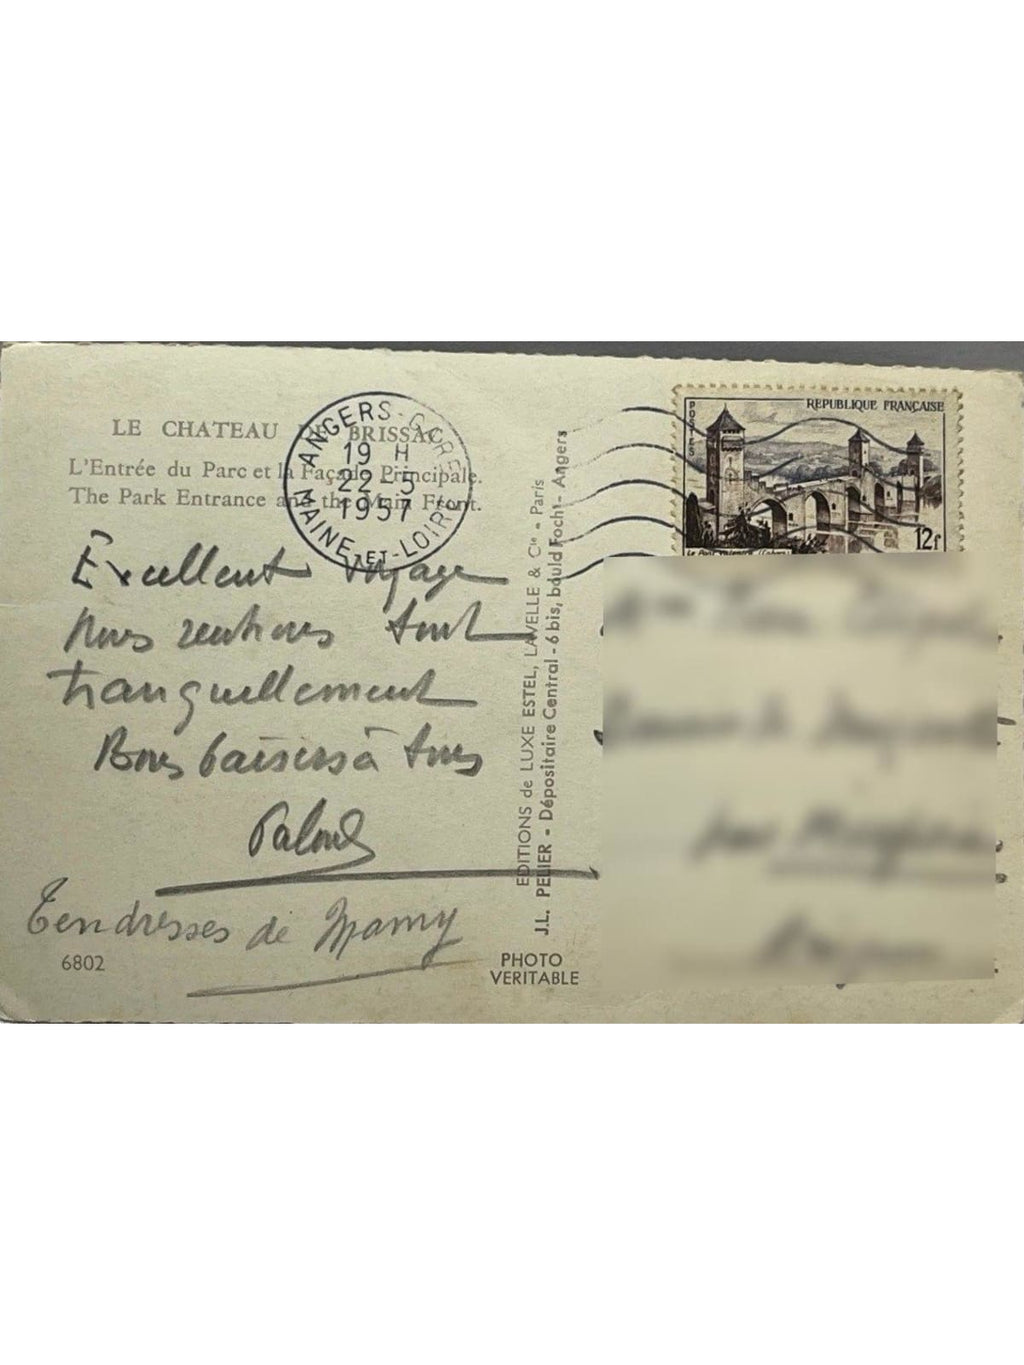 LE CHATEAU DE BRISSAC
L'Entrée du Parc et la Façade Principale.
The Park Entrance and the Main Front.
ANGERS-GARE
19 H
22-5
1957
MAINE-ET-LOIRE
Excellent voyage
Nous rentrons tout
tranquellement
Bons baisers à tous
Tendresses de Mamy
6802
EDITIONS de LUXE ESTEL, LAVELLE & Cie - Paris
J.L. PELIER - Dépositaire Central - 6 bis, bould Foch - Angers
PHOTO
VERITABLE
POSTES
REPUBLIQUE FRANÇAISE
12f
Le Pont Valentré (Cahors)